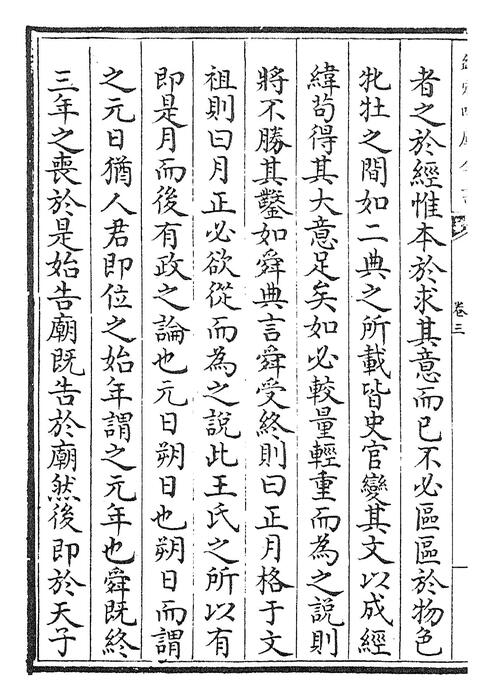 卷三
者之於經惟本於求其意而已不必區區於物色
牝牡之間如二典之所載皆史官變其文以成經
緯茍得其大意足矣如必較量輕重而為之說則
將不勝其鑿如舜典言舜受終則曰正月格于文
祖則曰月正必欲從而為之說此王氏之所以有
即是月而後有政之論也元日朔日也朔日而謂
之元日猶人君即位之始年謂之元年也舜既終
三年之喪於是始告廟既告於廟然後即於天子